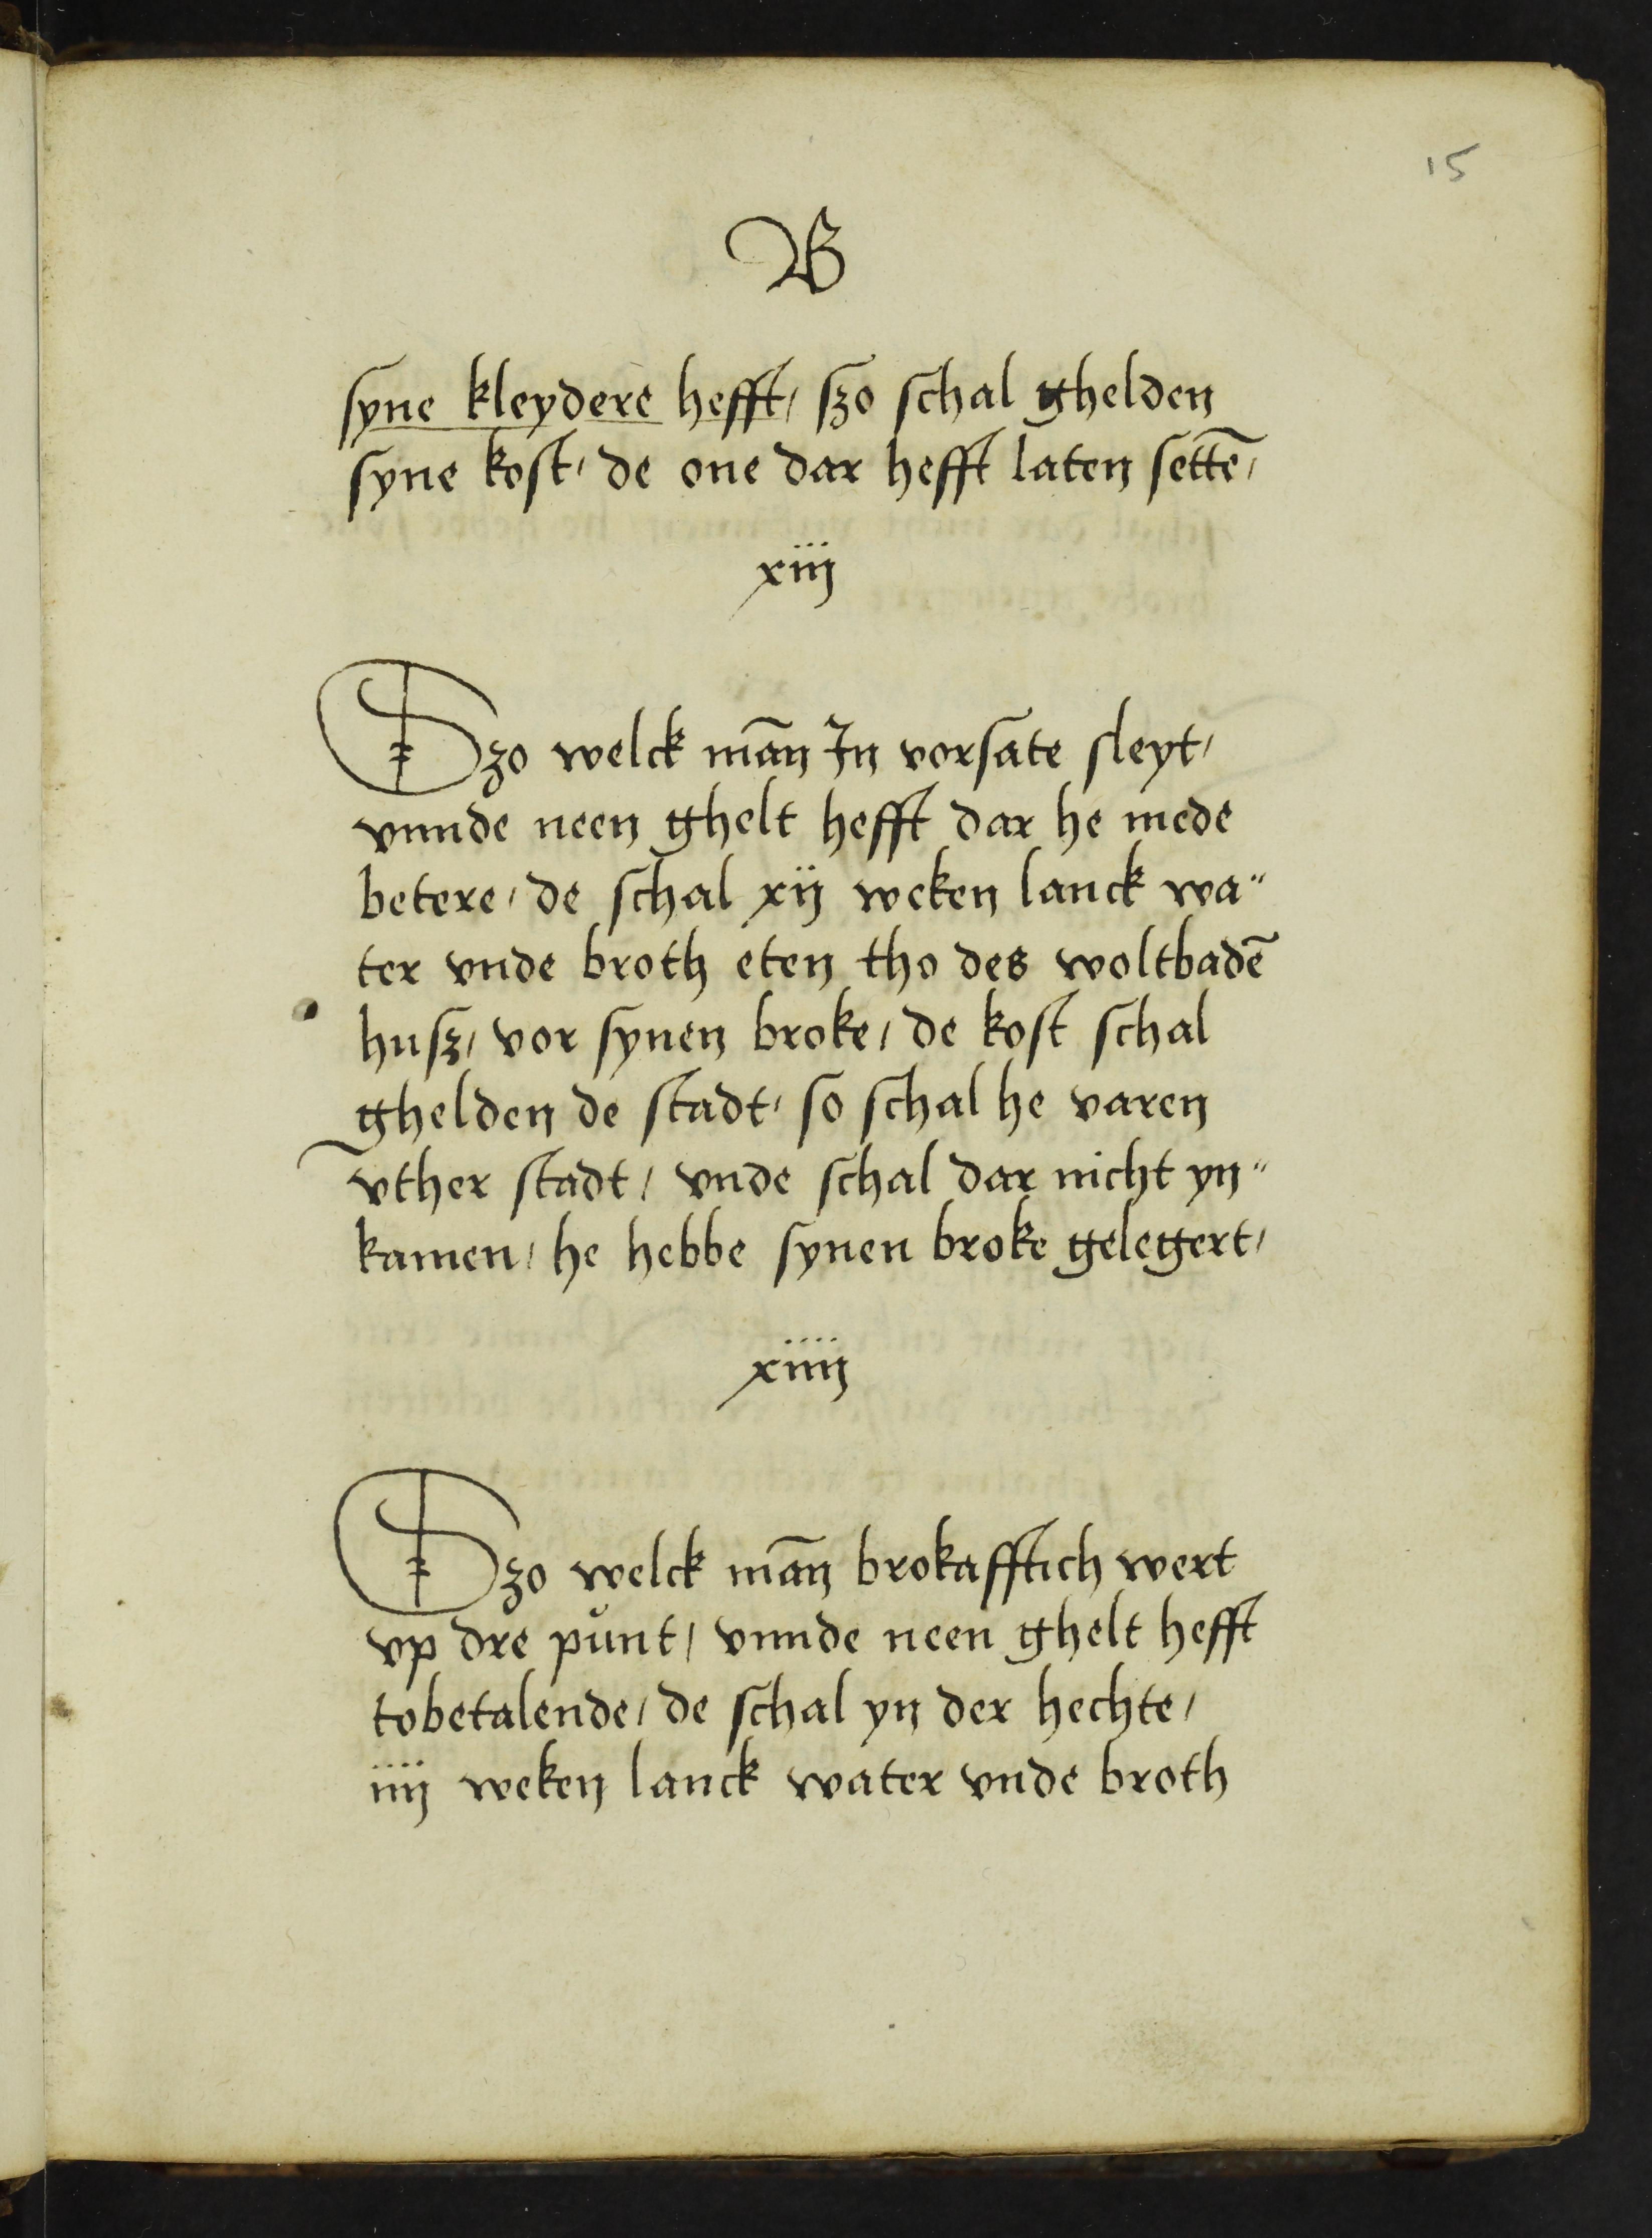 15
B
syne kleydere hefft, szo schal ghelden
syne kost, de one dar hefft laten settē,
xiij
Szo welck mān In vorsate sleyt,
vnnde neen ghelt hefft dar he mede
betere, de schal xij weken lanck wa"
ter vnde broth eten tho des woltbadē
husz, vor synen broke, de kost schal
ghelden de stadt, so schal he varen
vther stadt, vnde schal dar nicht yn"
kamen, he hebbe synen broke gelegert,
xiiij
Szo welck mān brokafftich wert
vp dre půnt, vnnde neen ghelt hefft
tobetalende, de schal yn der hechte,
iiij weken lanck water vnde broth